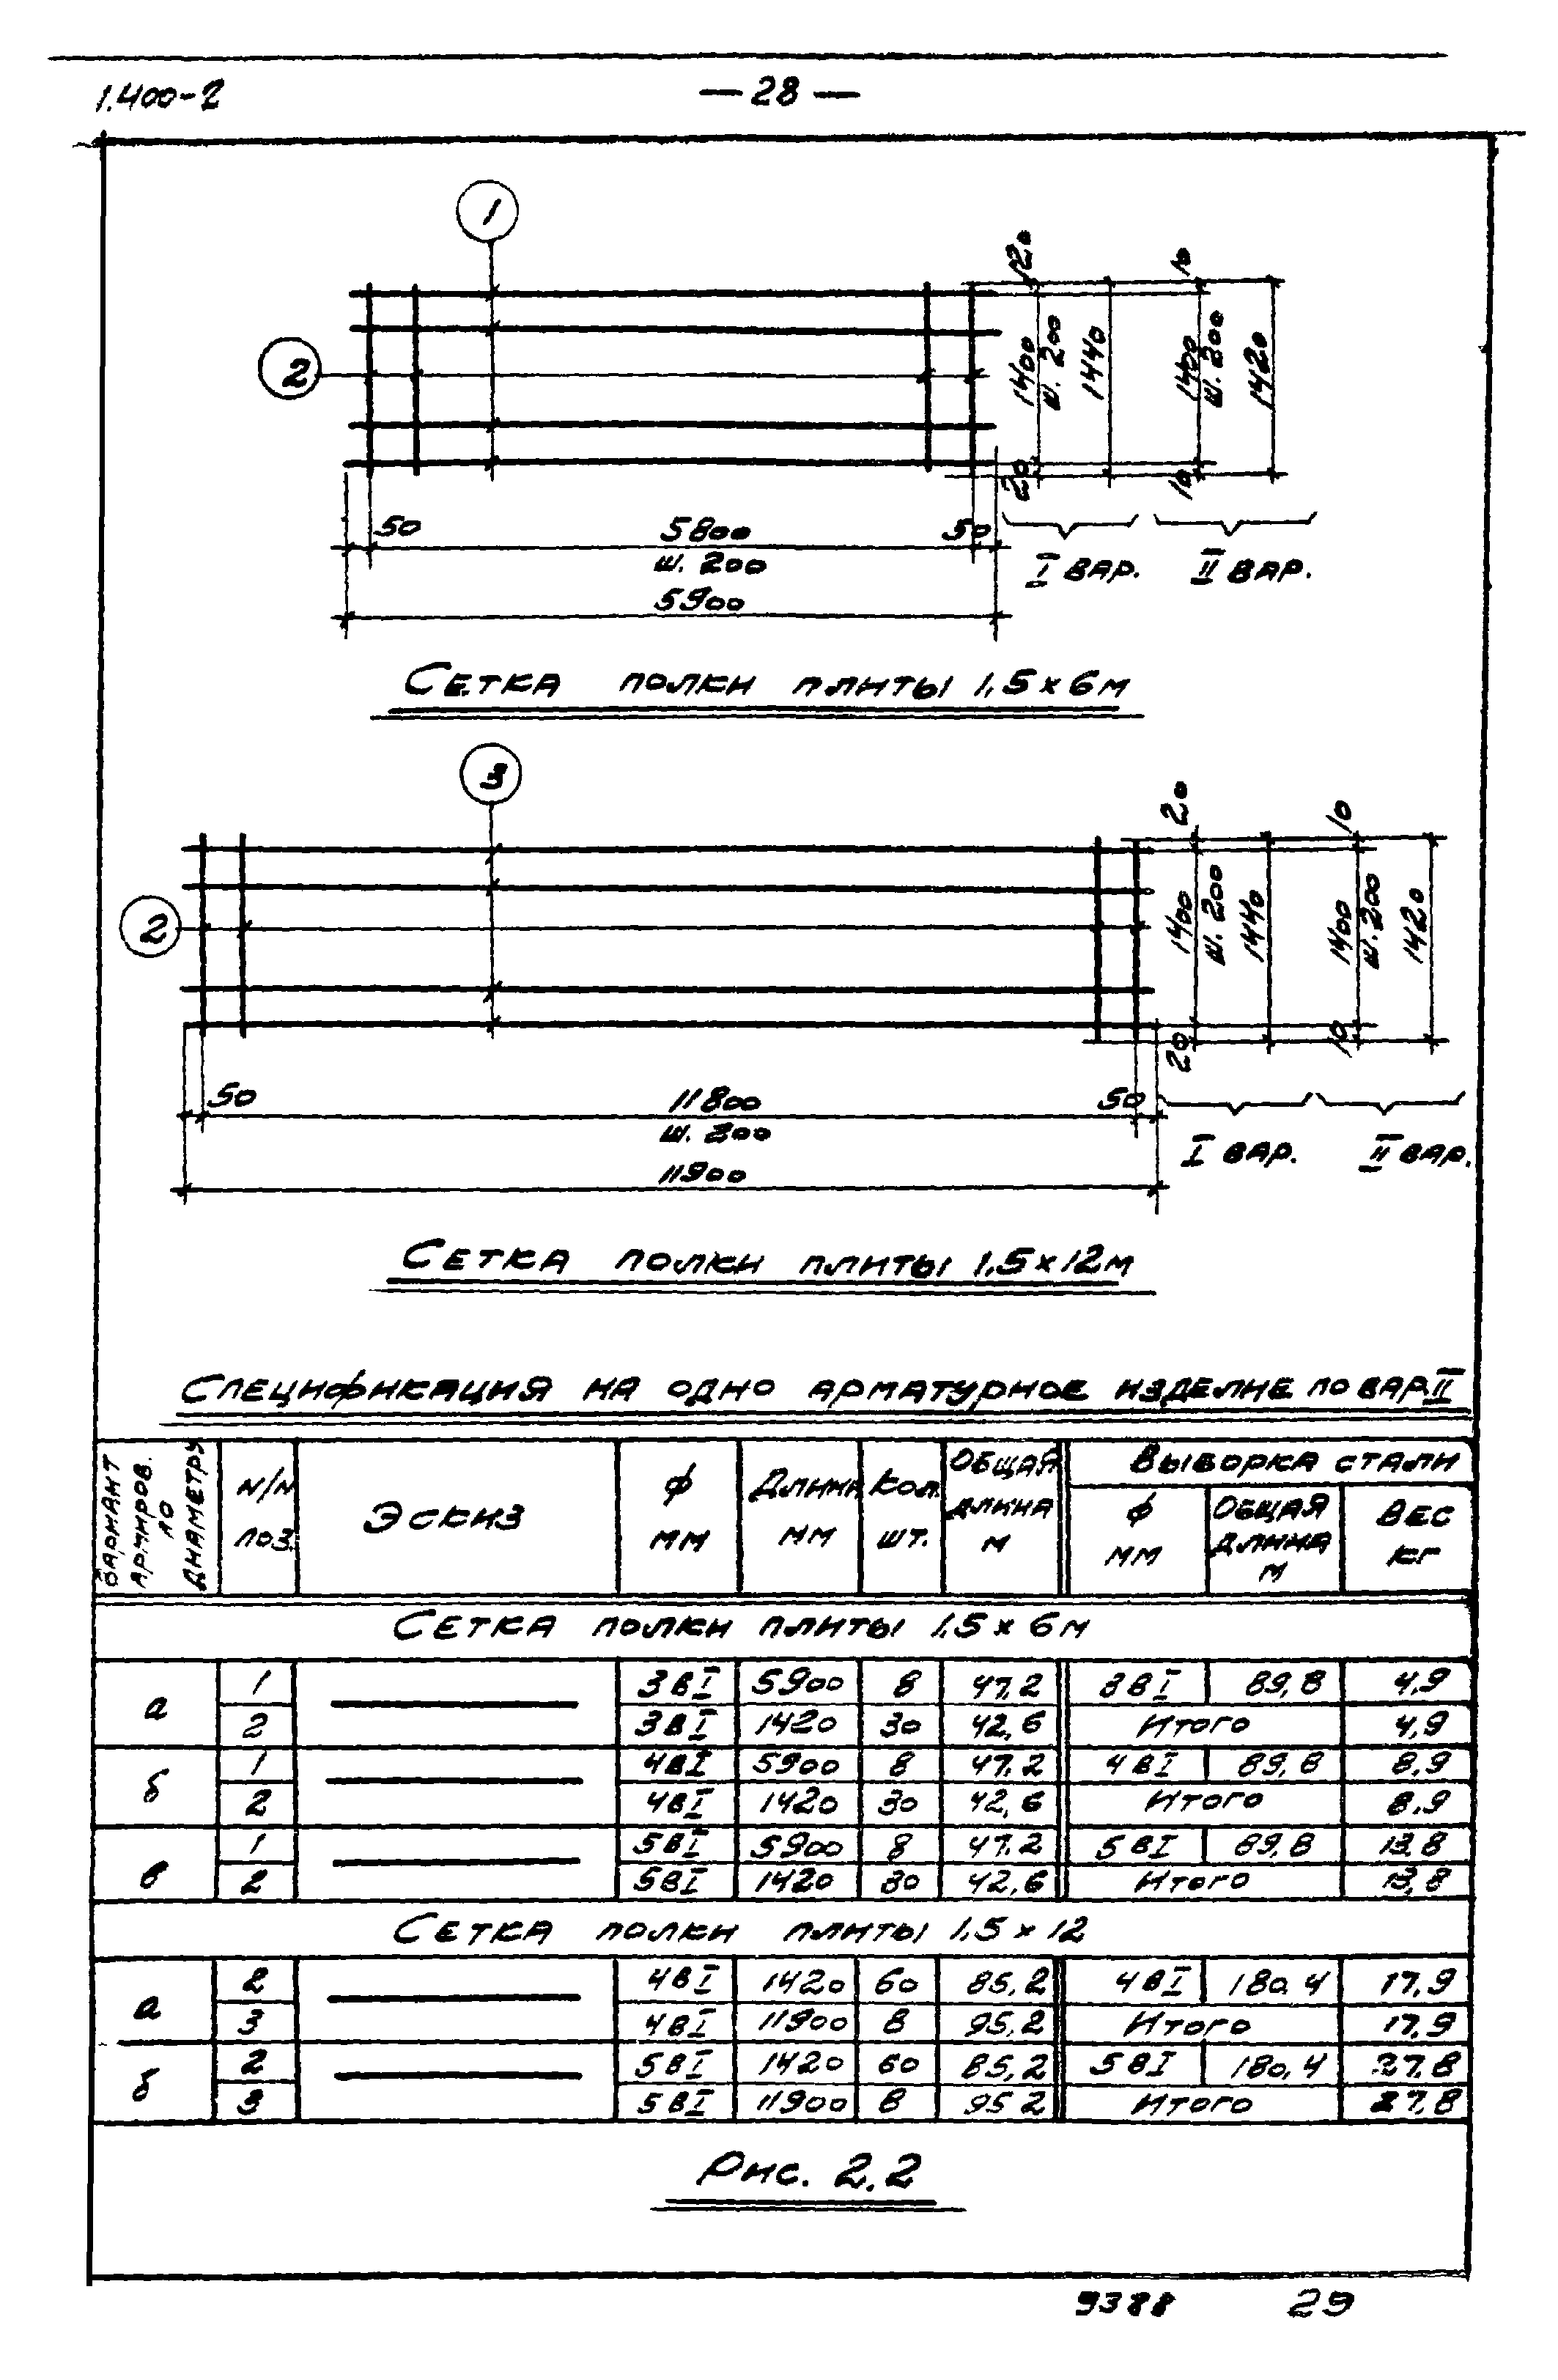 1.400-2
— 28 —
1
2
20
1400
ш. 200
1440
20
10
1400
ш. 200
1420
10
50
5800
50
ш. 200
5900
I вар.
II вар.
Сетка полки плиты 1,5 × 6м
3
2
20
1400
ш. 200
1440
20
10
1400
ш. 200
1420
10
50
11800
50
ш. 200
11900
I вар.
II вар.
Сетка полки плиты 1,5 × 12м
Спецификация на одно арматурное изделие по вар. II
Вариант армиров. по диаметру
N/N поз.
Эскиз
ф мм
Длина мм
Кол. шт.
Общая длина м
Выборка стали
ф мм
Общая длина м
Вес кг
Сетка полки плиты 1,5 × 6м
а 1 3ВI 5900 8 47,2 3ВI 89,8 4,9
2 3ВI 1420 30 42,6 Итого 4,9
б 1 4ВI 5900 8 47,2 4ВI 89,8 8,9
2 4ВI 1420 30 42,6 Итого 8,9
в 1 5ВI 5900 8 47,2 5ВI 89,8 13,8
2 5ВI 1420 30 42,6 Итого 13,8
Сетка полки плиты 1,5 × 12
а 2 4ВI 1420 60 85,2 4ВI 180,4 17,9
3 4ВI 11900 8 95,2 Итого 17,9
б 2 5ВI 1420 60 85,2 5ВI 180,4 27,8
3 5ВI 11900 8 95 2 Итого 27,8
Рис. 2.2
9388 29